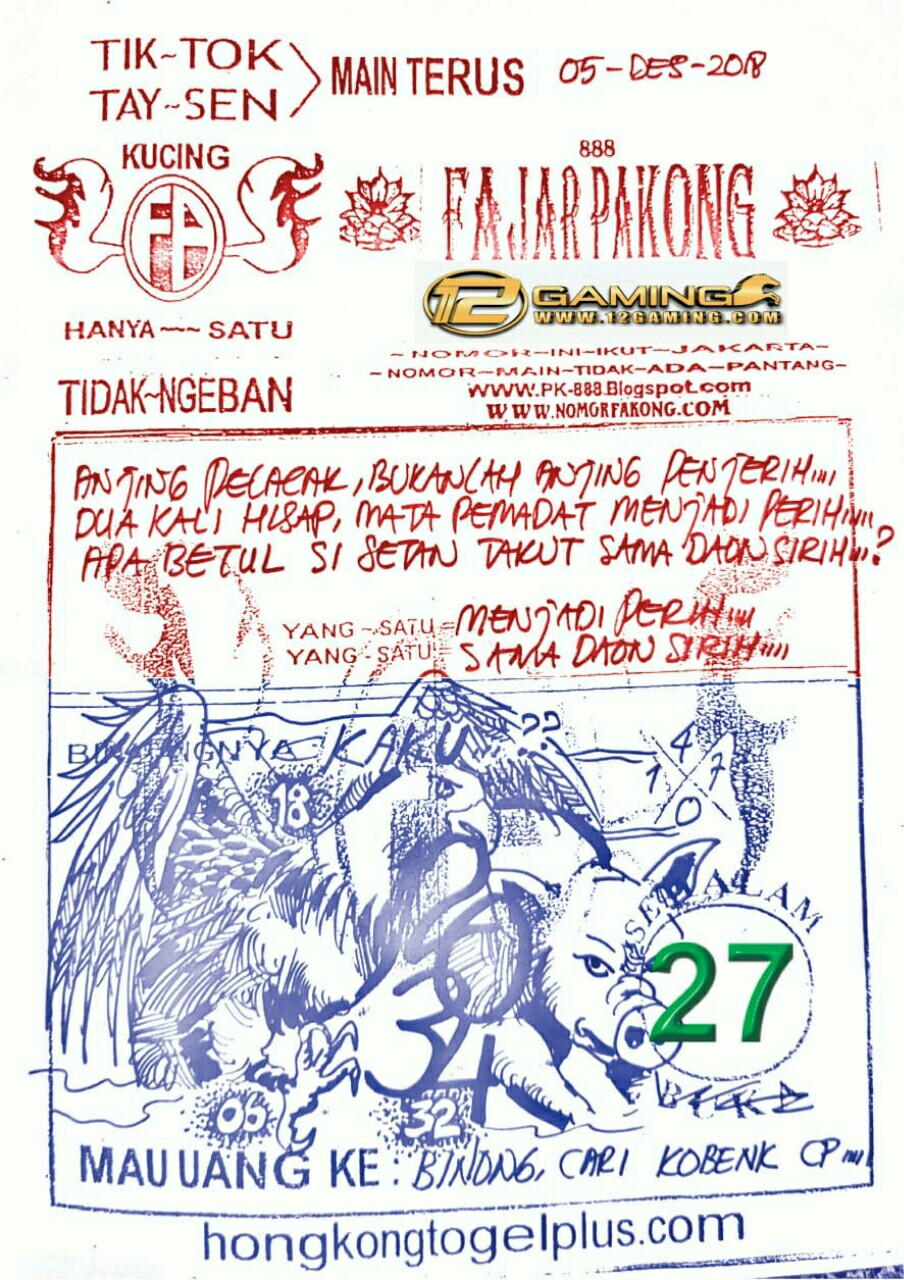 TIK~TOK
TAY~SEN
MAIN TERUS
05-DES-2018
KUCING
FA
HANYA~~~SATU
TIDAK~NGEBAN
888
FAJAR PAKONG
12 GAMING
WWW.12GAMING.COM
~NOMOR~INI~IKUT~JAKARTA~
~NOMOR~MAIN~TIDAK~ADA~PANTANG~
WWW.PK-888.Blogspot.com
WWW.NOMORPAKONG.COM
ANJING PELACAK, BUKANLAH ANJING PENJERIH....
DUA KALI HISAP, MATA PEMADAT MENJADI PERIH.....
APA BETUL SI SETAN TAKUT SAMA DAON SIRIH...?
YANG~SATU= MENJADI PERIH....
YANG-SATU= SAMA DAON SIRIH....
BINATANGNYA: KAKU..??
4
1 7
0
18
34
06
32
SEMALAM
27
MAU UANG KE: BINONG, CARI KOBENK CP....
hongkongtogelplus.com